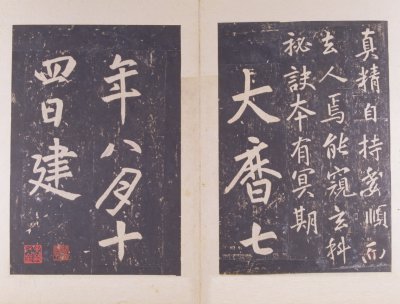 真精自持委順而
去人焉能窺玄科
秘訣本有冥期
大曆七
年八月十
四日建